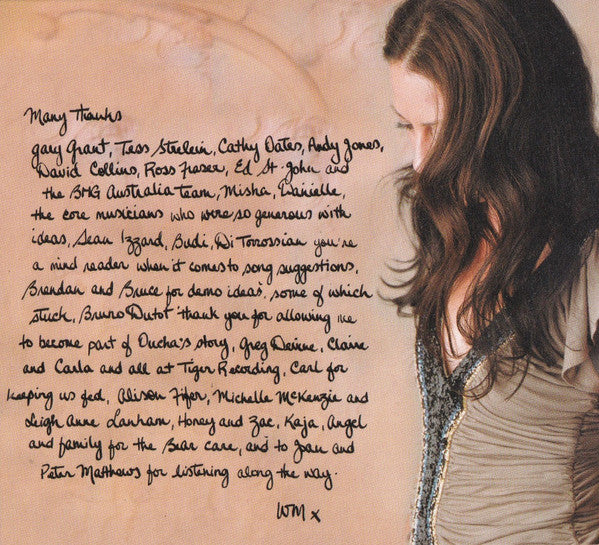 Many thanks
Gary Grant, Tess Strelein, Cathy Oates, Andy Jones,
David Collins, Ross Fraser, Ed St. John and
the BMG Australia Team, Misha, Danielle,
the core musicians who were so generous with
ideas, Sean Izzard, Budi, Di Torrossian you're
a mind reader when it comes to song suggestions,
Brendan and Bruce for demo ideas, some of which
stuck, Bruno Dutot thank you for allowing me
to become part of Ducha's story, Greg Devine, Claire
and Carla and all at Tiger Recording, Carl for
keeping us fed, Alison Fifer, Michelle McKenzie and
Leigh Anne Lanham, Honey and Zac, Kaja, Angel
and family for the Bear care, and to Joan and
Peter Matthews for listening along the way.
WM x